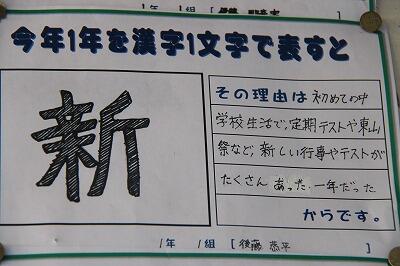 今年1年を漢字1文字で表すと
新
その理由は 初めての中
学校生活で、定期テストや東山
祭など、新しい行事やテストが
たくさん あった 一年だった
からです。
1年 1組 [ 後藤 恭平 ]